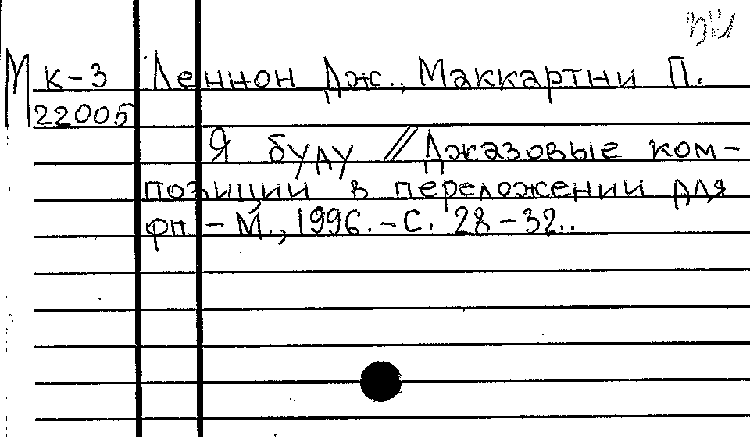 М к-3 Леннон Дж., Маккартни П.
22005
Я буду // Джазовые ком-
позиции в переложении для
фп. - М., 1996. - С. 28-32..